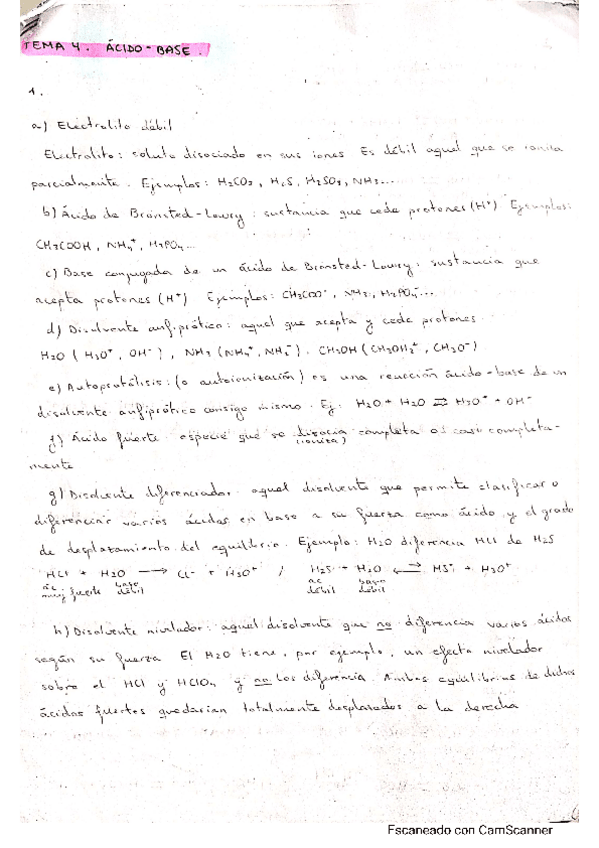 TEMA 4. ÁCIDO-BASE.
1.
a) Electrolito débil
Electrolito: soluto disociado en sus iones Es débil aquel que se ioniza
parcialmente. Ejemplos: H₂CO₃, H₂S, H₂SO₃, NH₃...
b) Ácido de Brönsted-Lowry: sustancia que cede protones (H⁺) Ejemplos:
CH₃COOH, NH₄⁺, H₃PO₄...
c) Base conjugada de un ácido de Brönsted-Lowry: sustancia que
acepta protones (H⁺) Ejemplos: CH₃COO⁻, NH₃, H₂PO₄⁻...
d) Disolvente anfiprótico: aquel que acepta y cede protones
H₂O (H₃O⁺, OH⁻), NH₃ (NH₄⁺, NH₂⁻), CH₃OH (CH₃OH₂⁺, CH₃O⁻)
e) Autoprotólisis: (o autoionización) es una reacción ácido-base de un
disolvente anfiprótico consigo mismo. Ej: H₂O + H₂O ⇄ H₃O⁺ + OH⁻
f) Ácido fuerte especie que se disocia completa o casi completa-
(ioniza)
mente
g) Disolvente diferenciador: aquel disolvente que permite clasificar o
diferenciar varios ácidos en base a su fuerza como ácido y el grado
de desplazamiento del equilibrio. Ejemplo: H₂O diferencia HCl de H₂S
HCl + H₂O → Cl⁻ + H₃O⁺ / H₂S + H₂O ⇄ HS⁻ + H₃O⁺
ác muy fuerte base débil ác débil base débil
h) Disolvente nivelador: aquel disolvente que no diferencia varios ácidos
según su fuerza El H₂O tiene, por ejemplo, un efecto nivelador
sobre el HCl y HClO₄ y no los diferencia. Ambos equilibrios de dichos
ácidos fuertes quedarían totalmente desplazados a la derecha
Escaneado con CamScanner